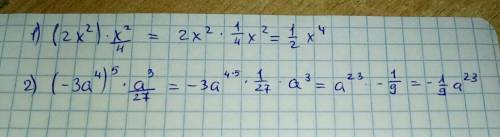 1) (2x²)·x²/4 = 2x²·1/4x² = 1/2 x⁴
2) (-3a⁴)⁵·a³/27 = -3a⁴·⁵·1/27·a³ = a²³·-1/9 = -1/9 a²³